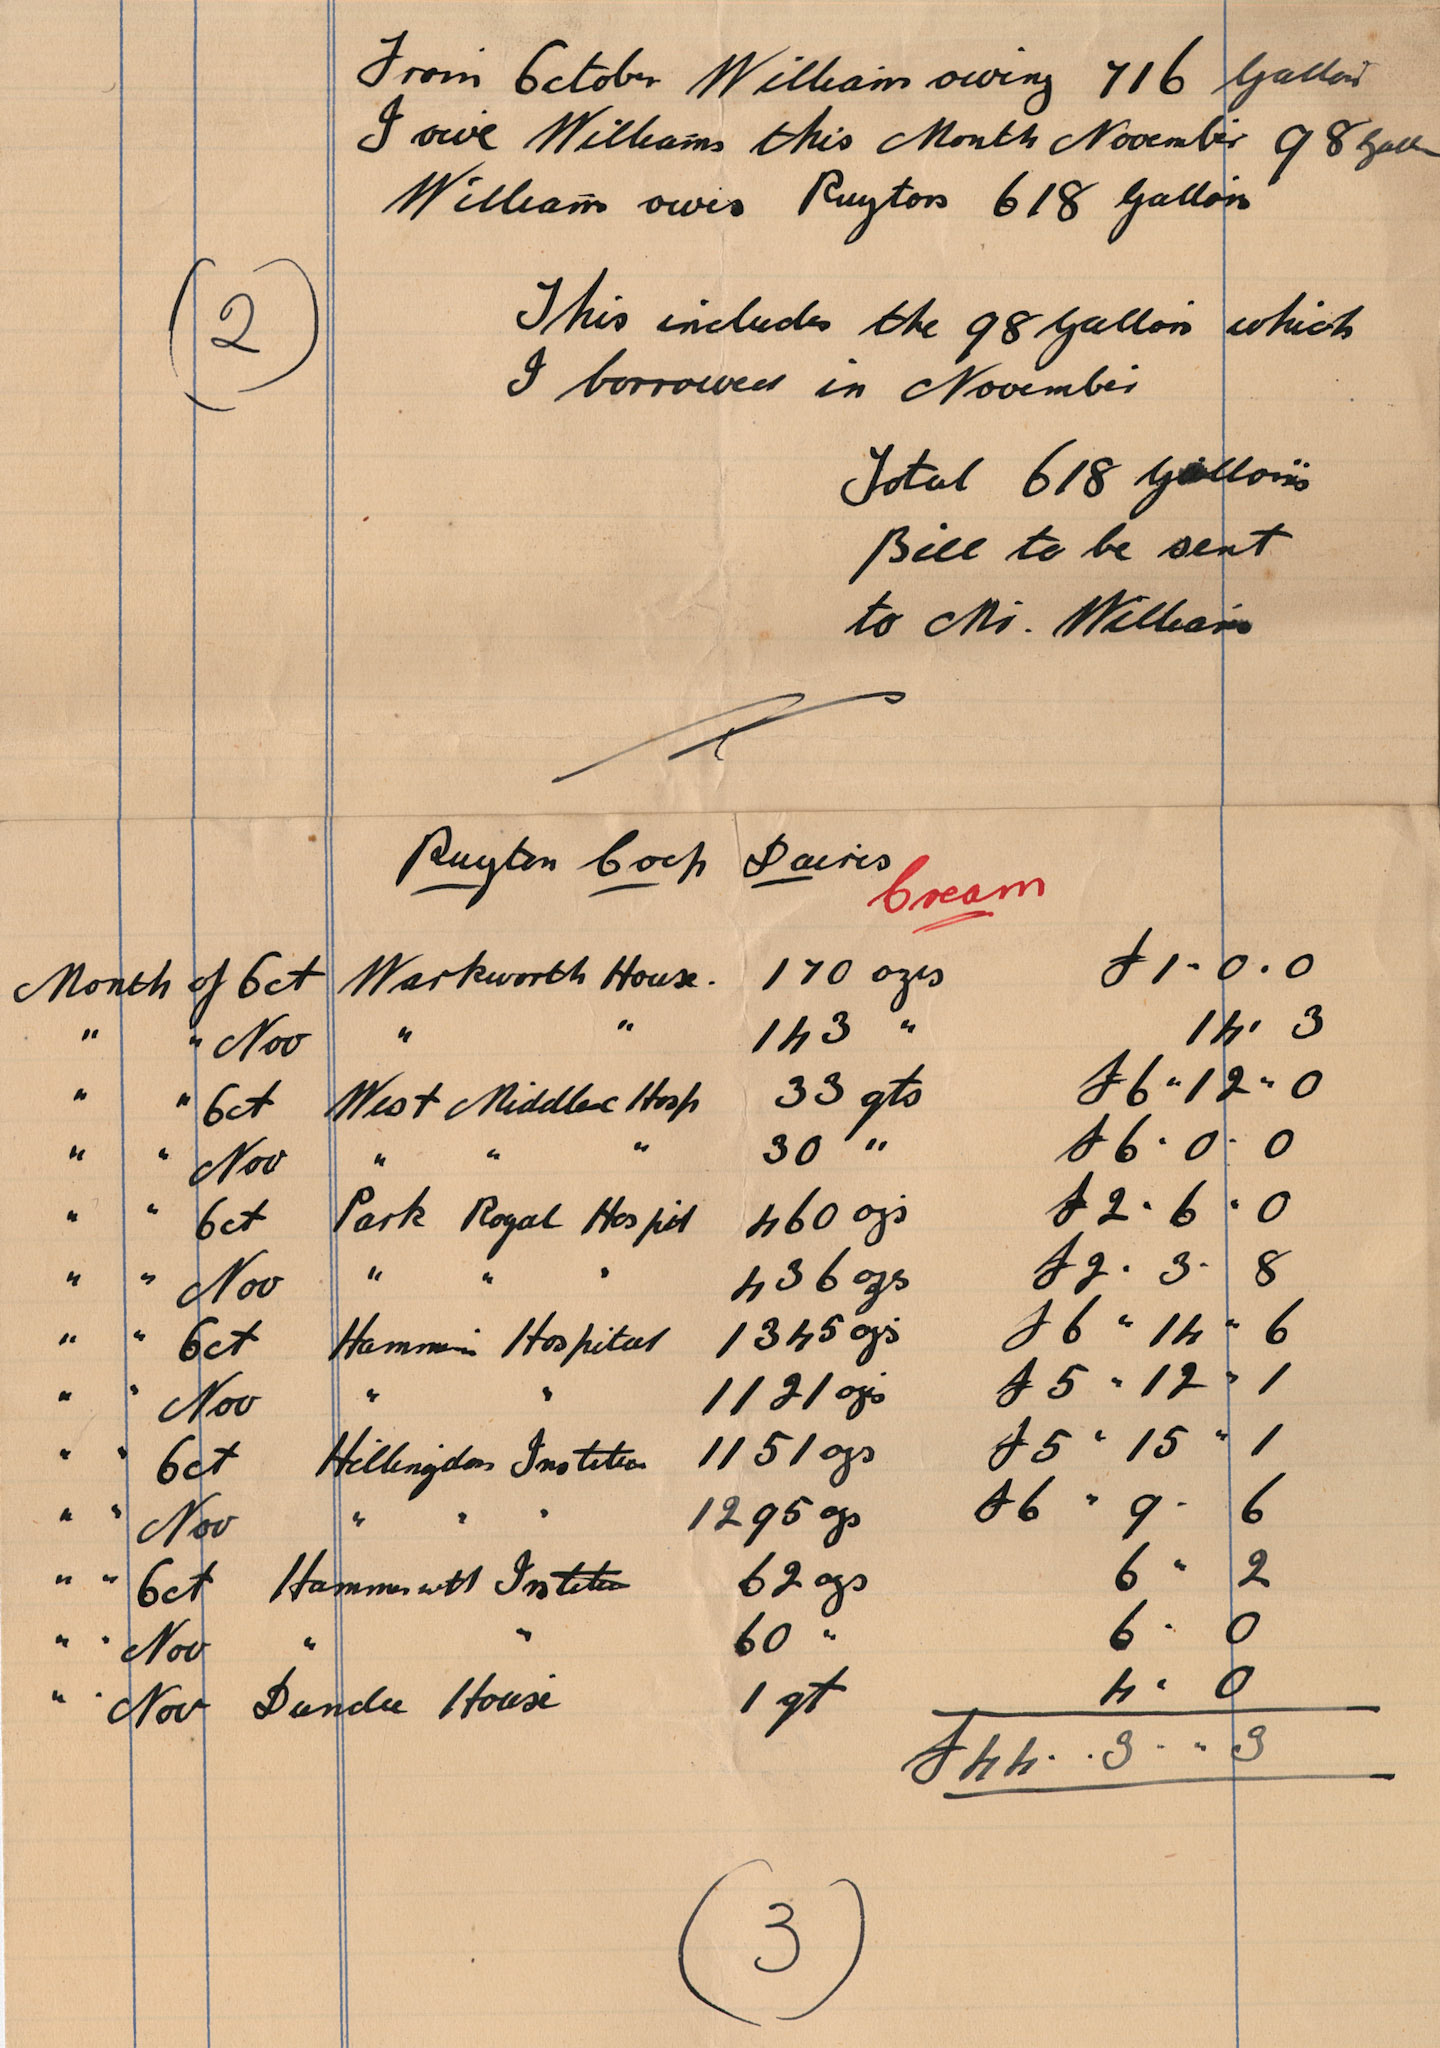 From October William owing 716 Gallons
I owe Williams this Month November 98 Gallon
Williams owes Ruyton 618 Gallons
(2)
This includes the 98 Gallons which
I borrowed in November
Total 618 Gallons
Bill to be sent
to Mr. William
Ruyton Coop Dairies
Cream
Month of Oct Warkworth House. 170 ozs £1-0.0
" " Nov " " 143 " 14. 3
" " Oct West Middlesex Hosp 33 qts £6"12"0
" " Nov " " " 30 " £6.0.0
" " Oct Park Royal Hospit 460 ozs £2.6.0
" " Nov " " " 436 ozs £2.3.8
" " Oct Hammer Hospital 1345 ozs £6"14"6
" " Nov " " 1121 ozs £5"12"1
" " Oct Hillingdon Institution 1151 ozs £5"15"1
" " Nov " " " 1295 ozs £6"9.6
" " Oct Hammersmith Institution 62 ozs 6"2
" " Nov " " 60 " 6.0
" " Nov Dundee House 1 qt 4.0
£44..3.."3
(3)